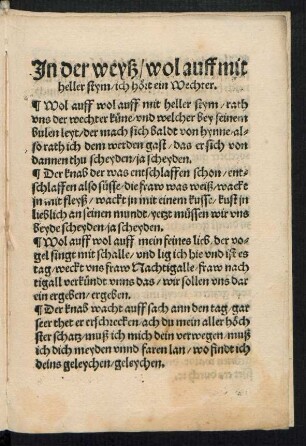 In der weyß/wol auff mit
heller stym/ich hört ein Wechter.
¶ Wol auff wol auff mit heller stym/rath
vns der wechter küne/vnd welcher bey seinem
bulen leyt/der mach sich baldt von hynne/al-
so rath ich dem werden gast/das er sich von
dannen thu scheyden/ja scheyden.
¶ Der knab der was entschlaffen schon/ent-
schlaffen also süsse/die fraw was weiß/wackt
jn mit fleyß/wackt jn mit einem kusse/kust jn
lieblich an seinen mund/yetzt müssen wir vns
beyde scheyden/ja scheyden.
¶ Wol auff wol auff mein feines lieb/der vo-
gel singt mit schalle/vnd lig ich hie vnd ist es
tag/weckt vns fraw Nachtigalle/fraw nach
tigall verkündt vnns das/wir sollen vns dar
ein ergeben/ergeben.
¶ Der knab wacht auff sach ann den tag/gar
seer thet er erschrecken/ach du mein aller höch
ster schatz/muß ich mich dein verwegen/muß
ich dich meyden vnnd faren lan/wo findt ich
deins geleychen/geleychen.